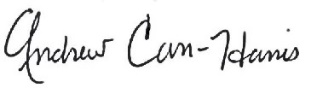 Andrew Carr-Harris